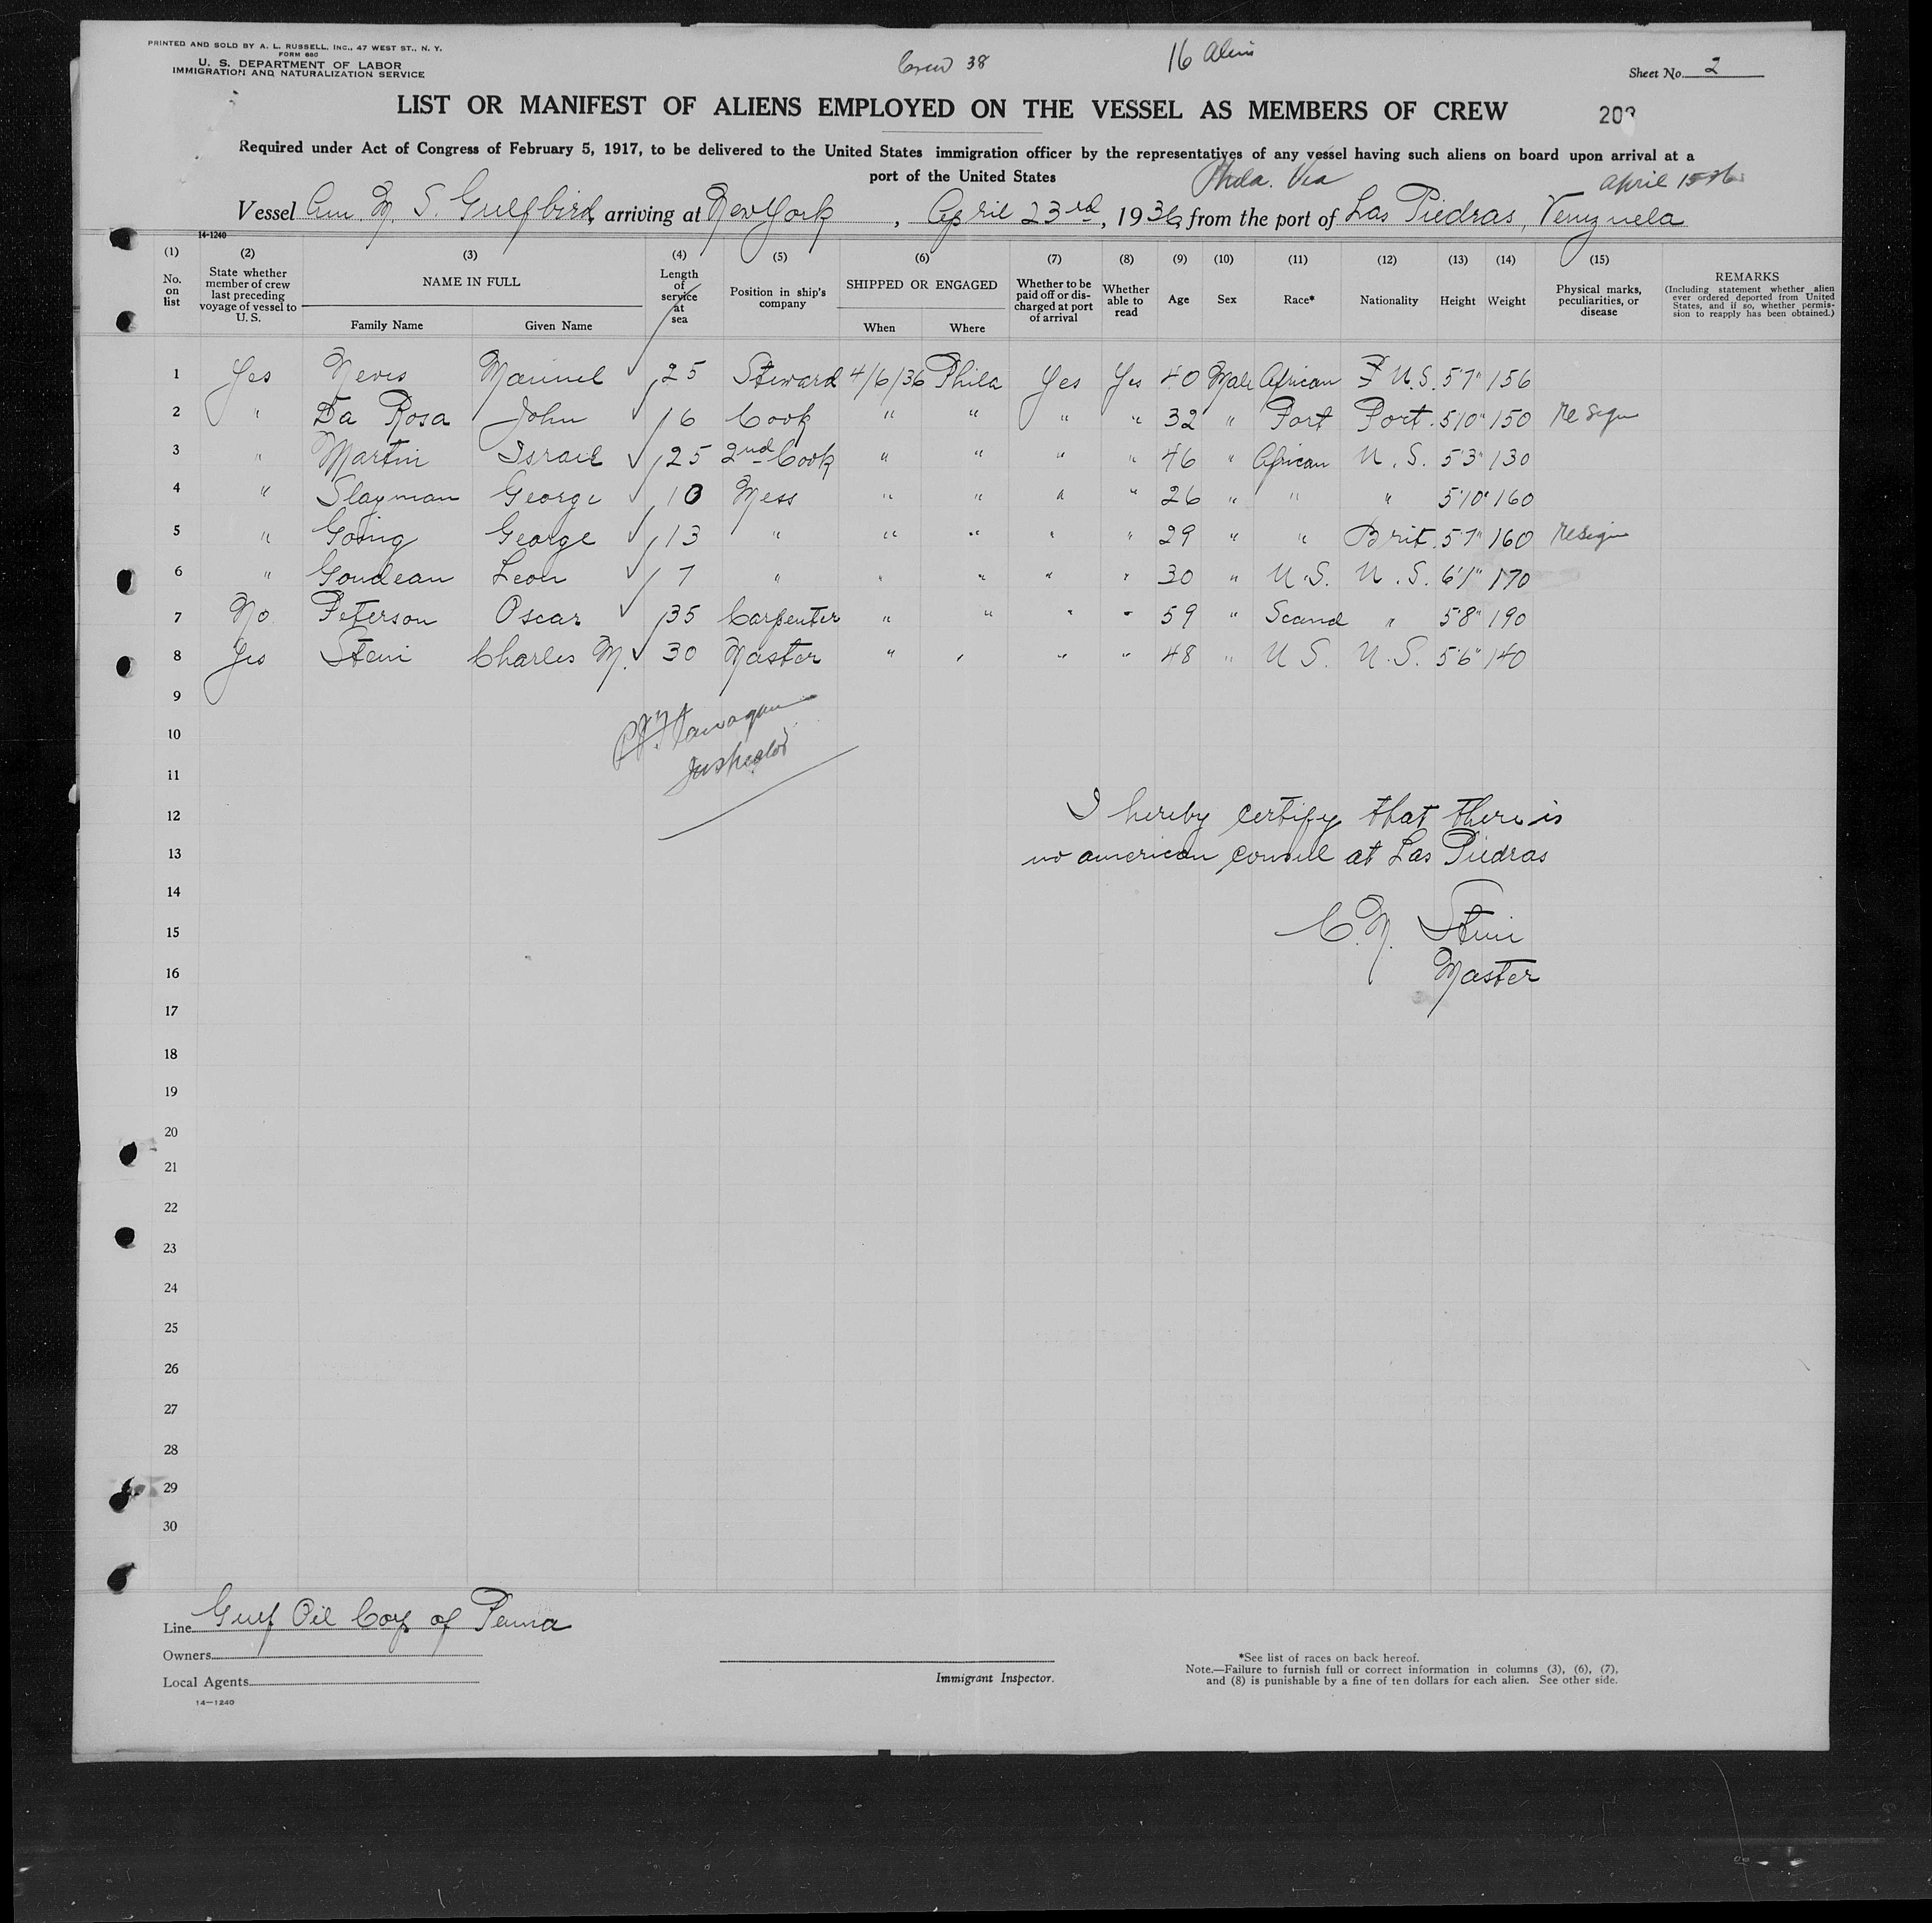 PRINTED AND SOLD BY A. L. RUSSELL, INC., 47 WEST ST., N. Y.
FORM 680
U. S. DEPARTMENT OF LABOR
IMMIGRATION AND NATURALIZATION SERVICE
Crew 38
16 Alien
Sheet No. 2
LIST OR MANIFEST OF ALIENS EMPLOYED ON THE VESSEL AS MEMBERS OF CREW
Required under Act of Congress of February 5, 1917, to be delivered to the United States immigration officer by the representatives of any vessel having such aliens on board upon arrival at a
port of the United States
Phila. Via
Vessel Am. M. S. Gulfbird, arriving at New York, April 23rd, 1936, from the port of Las Piedras, Venezuela
14-1240
(1) No. on list
(2) State whether member of crew last preceding voyage of vessel to U. S.
(3) NAME IN FULL Family Name Given Name
(4) Length of service at sea
(5) Position in ship's company
(6) SHIPPED OR ENGAGED When Where
(7) Whether to be paid off or discharged at port of arrival
(8) Whether able to read
(9) Age
(10) Sex
(11) Race*
(12) Nationality
(13) Height
(14) Weight
(15) Physical marks, peculiarities, or disease
REMARKS (Including statement whether alien ever ordered deported from United States, and if so, whether permission to reapply has been obtained.)
1 Yes Neves Manuel 25 Steward 4/6/36 Phila Yes Yes 40 Male African U.S. 5'7" 156
2 " Da Rosa John 16 Cook " " " " 32 " Port Port. 5'10" 150 resign
3 " Martin Israel 25 2nd Cook " " " " 46 " African U.S. 5'3" 130
4 " Slayman George 10 Mess " " " " 26 " " " 5'10" 160
5 " Going George 13 " " " " " 29 " " Brit. 5'7" 160 resign
6 " Goudeau Leon 7 " " " " " 30 " U.S. U.S. 6'1" 170
7 No Peterson Oscar 35 Carpenter " " " " 59 " Scand " 5'8" 190
8 Yes Stein Charles M. 30 Master " " " " 48 " U S. U.S. 5'6" 140
9
10
Inspector
11
12
I hereby certify that there is
13
no american consul at Las Piedras
14
15
C. M. Stein
16
Master
17
18
19
20
21
22
23
24
25
26
27
28
29
30
Line Gulf Oil Corp of Penna
Owners
Local Agents
14—1240
Immigrant Inspector.
*See list of races on back hereof.
Note.—Failure to furnish full or correct information in columns (3), (6), (7),
and (8) is punishable by a fine of ten dollars for each alien. See other side.